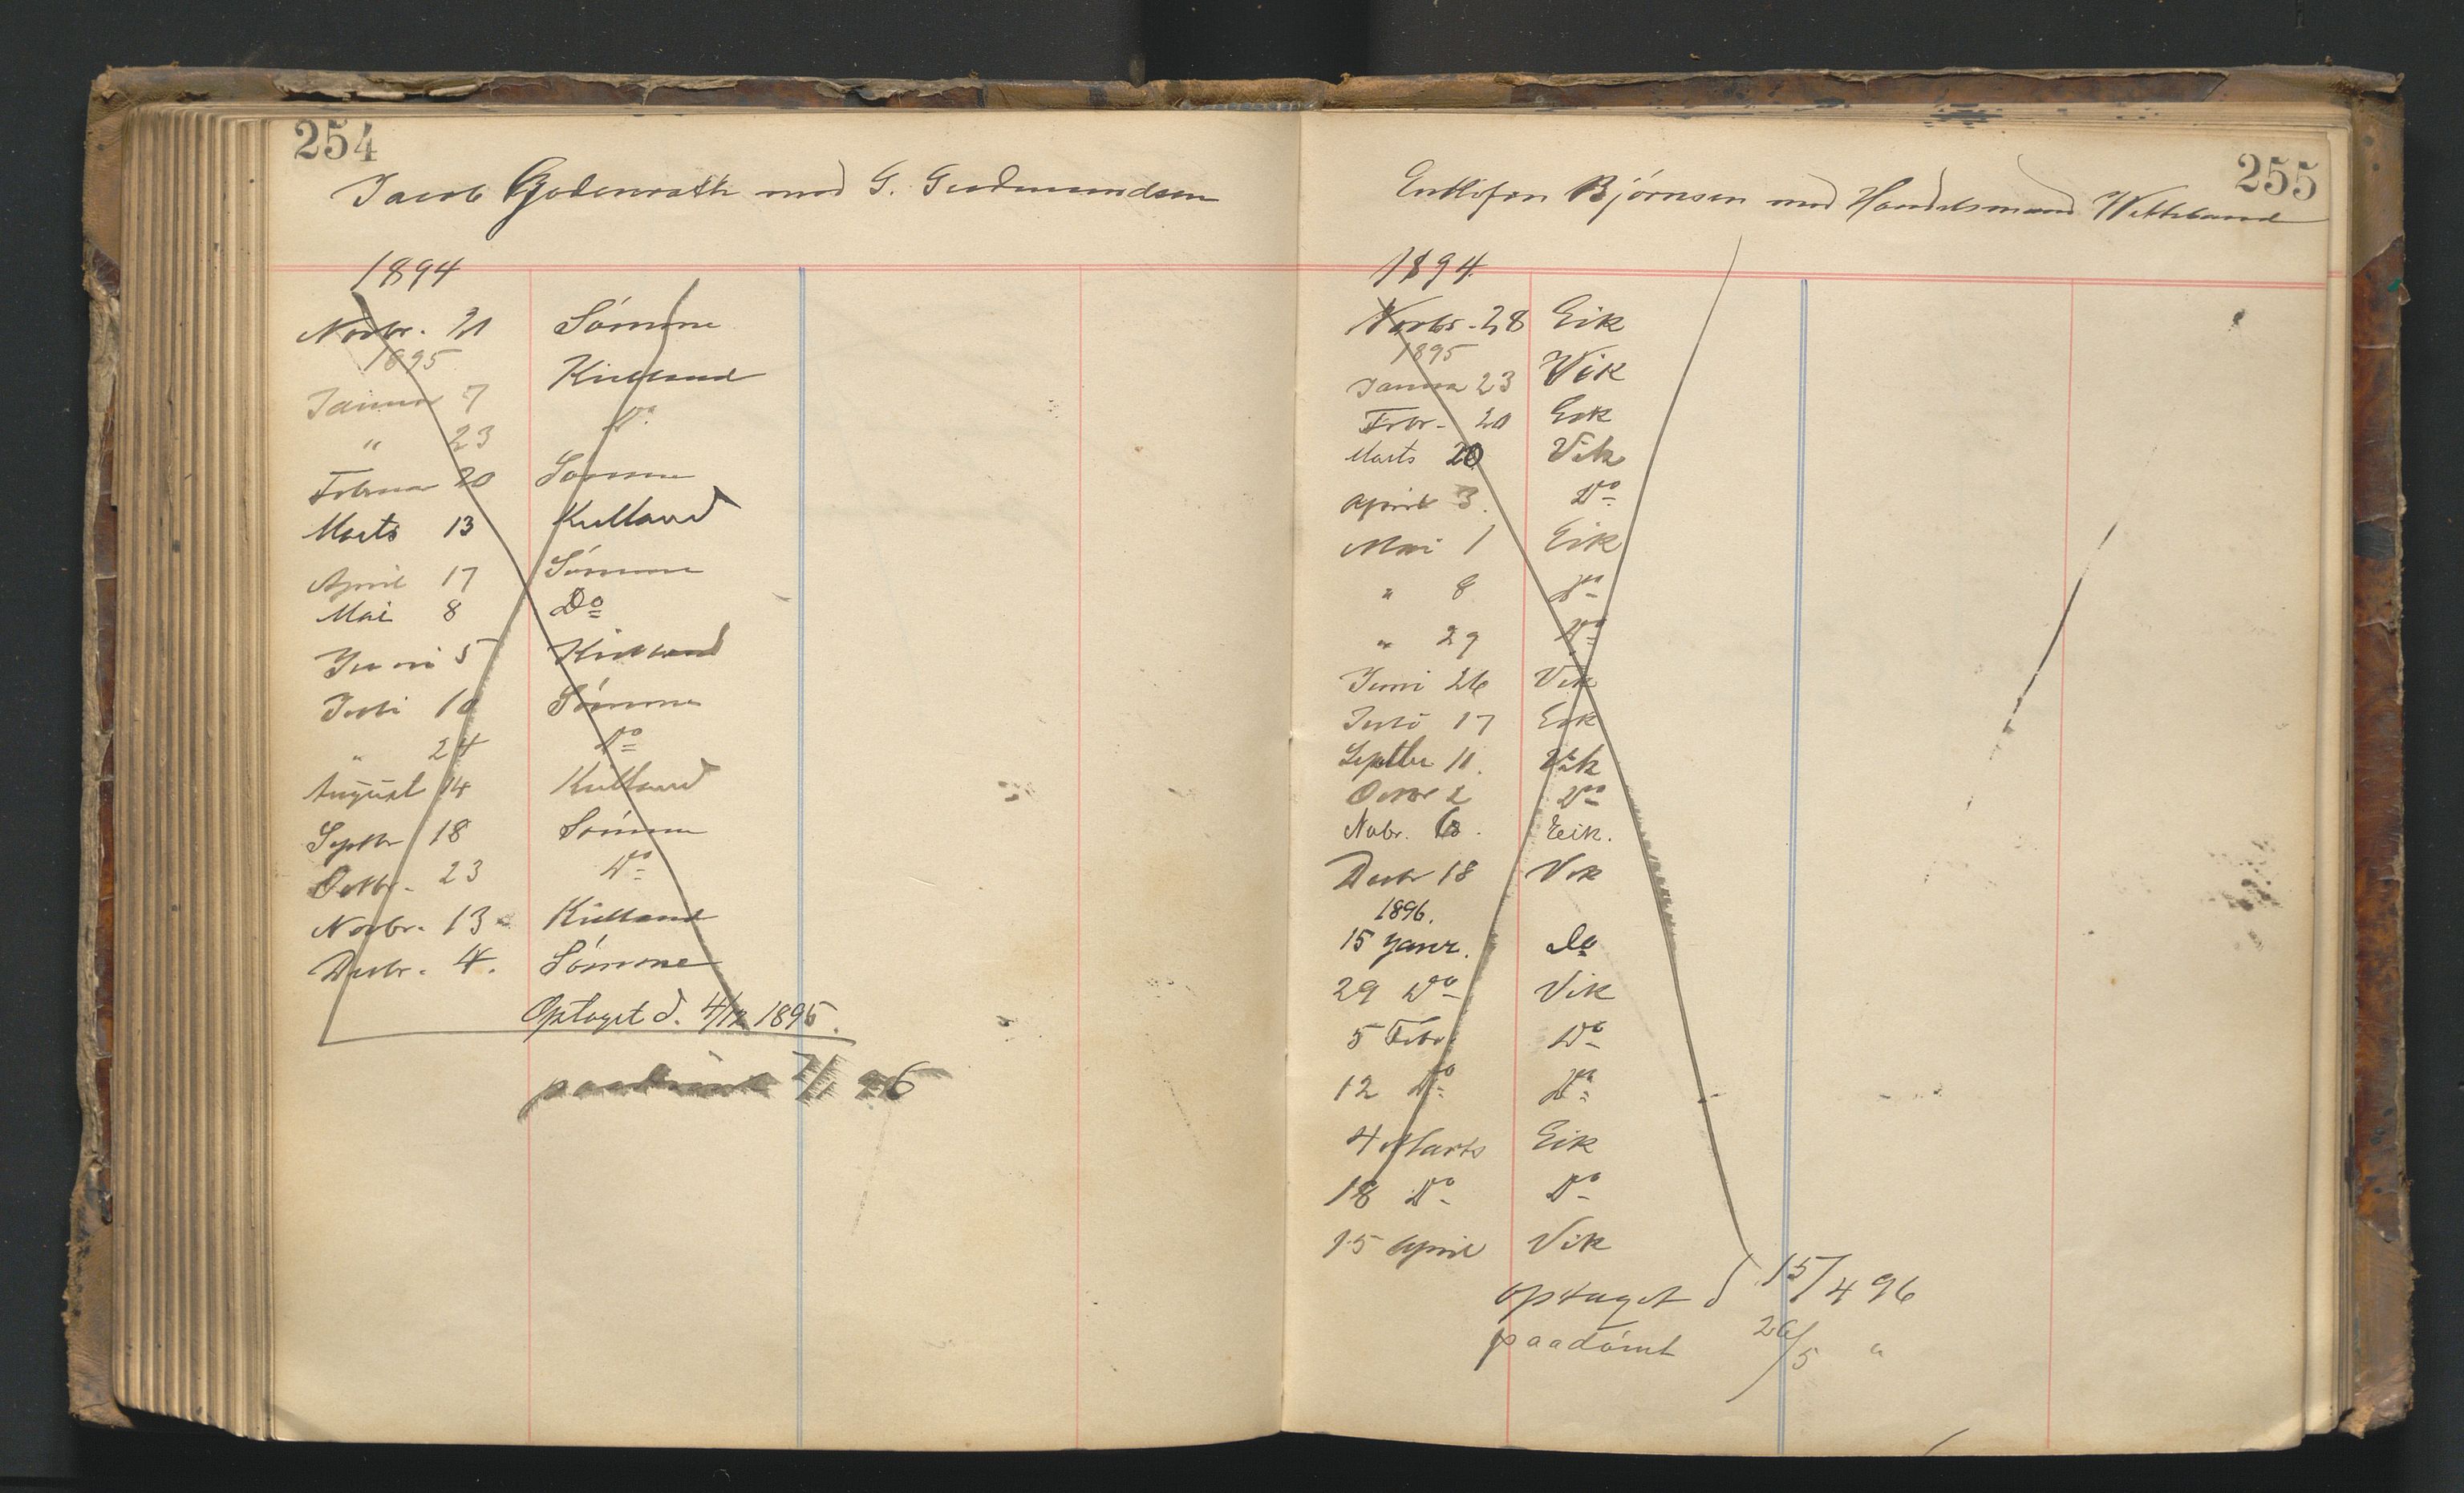 254
Jacob Godenrath mod G. Gudmundsen
1894
Novbr. 21 Sömme
1895
Januar 7 Kielland
" 23 Do
Februar 20 Sömme
Marts 13 Kielland
April 17 Sömme
Mai 8 Do
Juni 5 Kielland
Juli 10 Sömme
" 24 Do
August 14 Kielland
Septbr 18 Sömme
Octbr. 23 Do
Novbr. 13 Kielland
Decbr. 4. Sömme
Optaget d. 4/12 1895.
paadömt 7/1 96
255
Björnsen mod Handelsmand
1894
Novbr. 28 Eik
1895
Januar 23 Vik
Febr. 20 Eik
Marts 20 Vik
April 3. Do
Mai 1 Eik
" 8 Do
" 29 Do
Juni 26 Vik
Juli 17 Eik
Septbr 11. Vik
Octbr 2 Do
Nobr. 6. Eik.
Decbr 18 Vik
1896.
15 Janr. Do
29 Do Vik
5 Febr Do
12 Do Do
4 Marts Eik
18 Do Do
15 April Vik
optaget d 15/4 96
paadömt 26/5 "